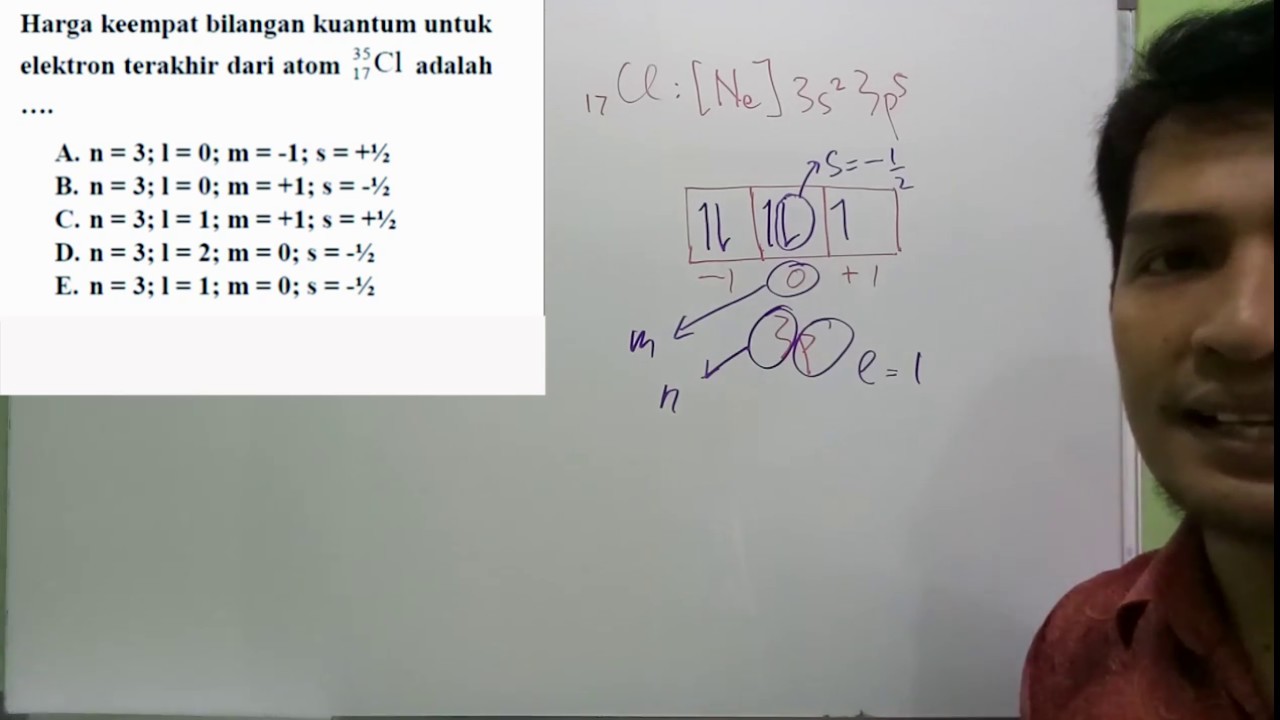 Harga keempat bilangan kuantum untuk
elektron terakhir dari atom ³⁵₁₇Cl adalah
....
A. n = 3; l = 0; m = -1; s = +½
B. n = 3; l = 0; m = +1; s = -½
C. n = 3; l = 1; m = +1; s = +½
D. n = 3; l = 2; m = 0; s = -½
E. n = 3; l = 1; m = 0; s = -½
₁₇Cl : [Ne] 3s² 3p⁵
s = -1/2
1⇂ 1⇂ 1
-1 0 +1
m
3p l = 1
n